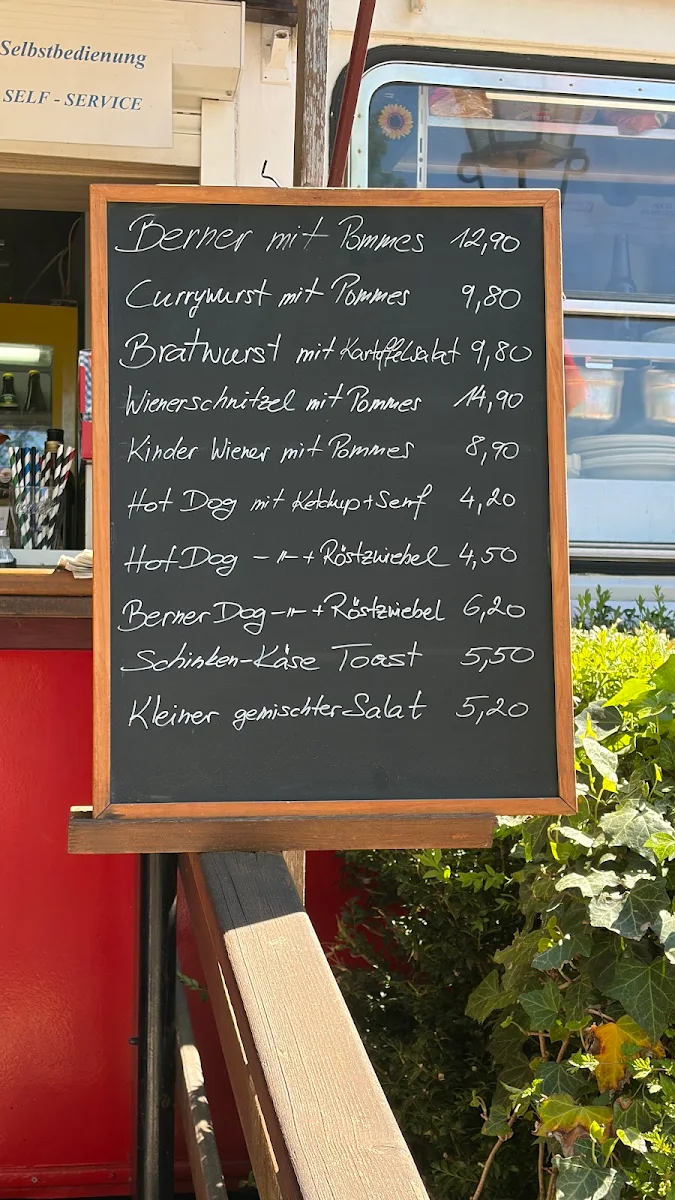 Selbstbedienung
SELF - SERVICE
Berner mit Pommes 12,90
Currywurst mit Pommes 9,80
Bratwurst mit Kartoffelsalat 9,80
Wienerschnitzel mit Pommes 14,90
Kinder Wiener mit Pommes 8,90
Hot Dog mit Ketchup+Senf 4,20
Hot Dog -"- + Röstzwiebel 4,50
Berner Dog -"- + Röstzwiebel 6,20
Schinken-Käse Toast 5,50
Kleiner gemischter Salat 5,20